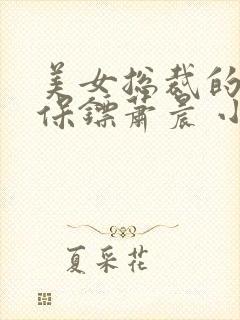 美女总裁的
保镖萧晨小
夏采花